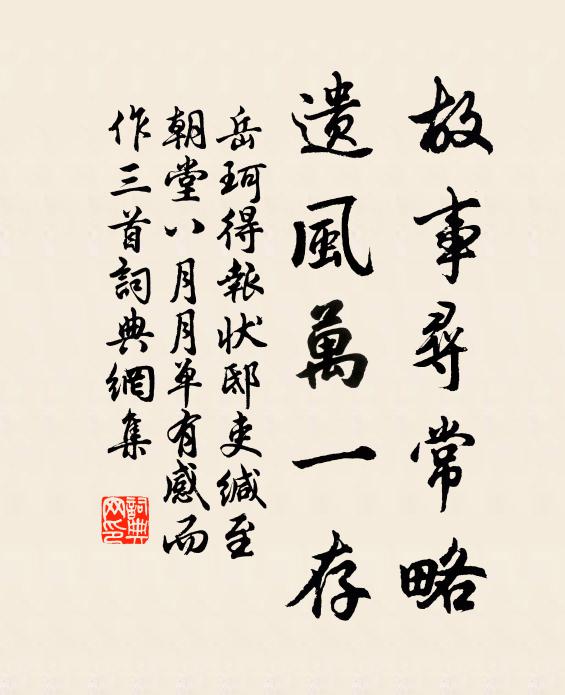 故事尋常略
遺風萬一存
岳珂得報狀邸吏緘至
朝堂八月月單有感而
作三首詞典網集
詞典
网印